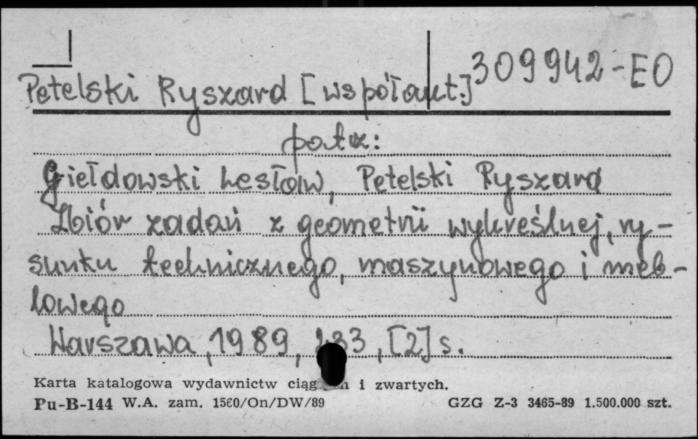 309942-EO
Petelski Ryszard [współaut.]
patrz:
Giełdowski Lesław, Petelski Ryszard
Zbiór zadań z geometrii wykreślnej, ry-
sunku technicznego, maszynowego i meb-
lowego
Warszawa, 1989, [2] s.
Karta katalogowa wydawnictw i zwartych.
Pu-B-144 W.A. zam. 1560/On/DW/89 GZG Z-3 3465-89 1.500.000 szt.